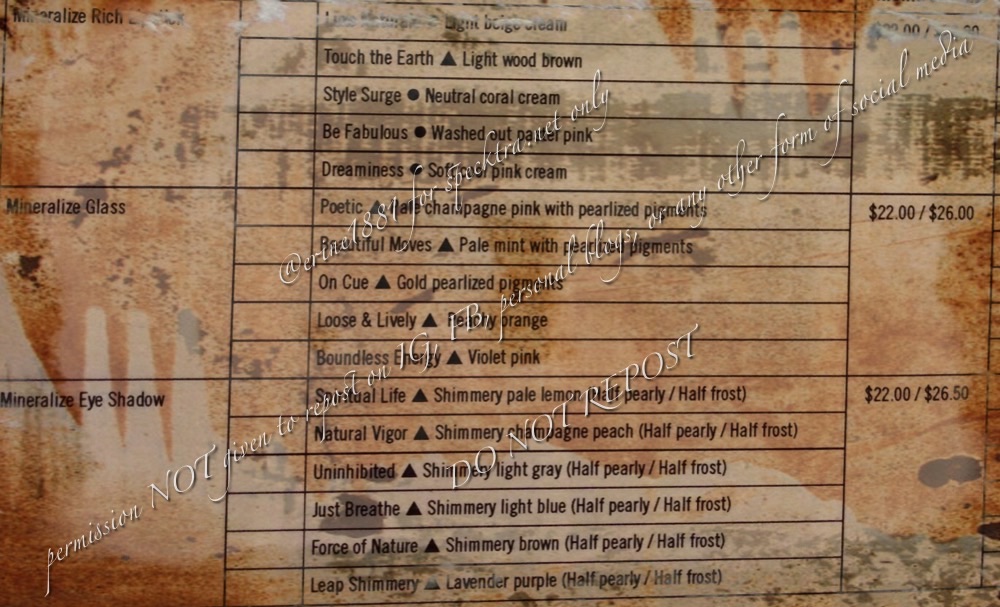 Mineralize Rich Lipstick
Light beige cream
Touch the Earth ▲ Light wood brown
Style Surge ● Neutral coral cream
Be Fabulous ● Washed out pink
Dreaminess ● pink cream
Mineralize Glass
Poetic ▲ Pale champagne pink with pearlized pigments
$22.00 / $26.00
Beautiful Moves ▲ Pale mint with pearlized pigments
On Cue ▲ Gold pearlized pigments
Loose & Lively ▲ Peachy orange
Boundless Energy ▲ Violet pink
Mineralize Eye Shadow
Spiritual Life ▲ Shimmery pale lemon (Half pearly / Half frost)
$22.00 / $26.50
Natural Vigor ▲ Shimmery champagne peach (Half pearly / Half frost)
Uninhibited ▲ Shimmery light gray (Half pearly / Half frost)
Just Breathe ▲ Shimmery light blue (Half pearly / Half frost)
Force of Nature ▲ Shimmery brown (Half pearly / Half frost)
Leap Shimmery ▲ Lavender purple (Half pearly / Half frost)
@erine1881 for specktra.net only
permission NOT given to repost on IG, FB, personal blogs, or any other form of social media
DO NOT REPOST